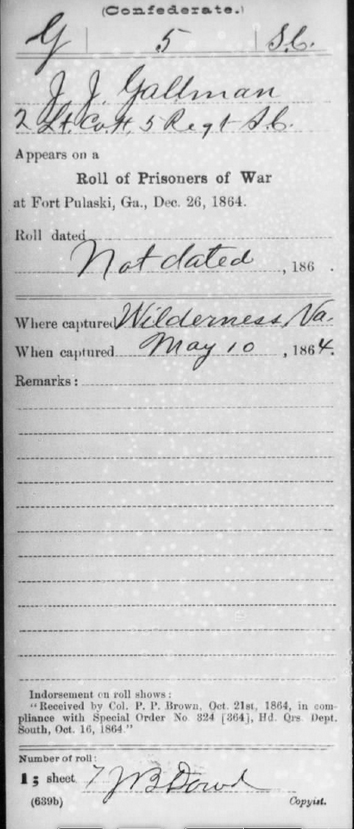 (Confederate.)
G | 5 | S.C.
J. J. Gallman
2 Lt. Co H, 5 Regt S.C.
Appears on a
Roll of Prisoners of War
at Fort Pulaski, Ga., Dec. 26, 1864.
Roll dated
Not dated, 186 .
Where captured Wilderness, Va.
When captured May 10, 1864.
Remarks:
Indorsement on roll shows:
"Received by Col. P. P. Brown, Oct. 21st, 1864, in com-
pliance with Special Order No 324 [364], Hd. Qrs. Dept.
South, Oct. 16, 1864."
Number of roll:
15 sheet 7 J B Dowd
(639b) Copyist.